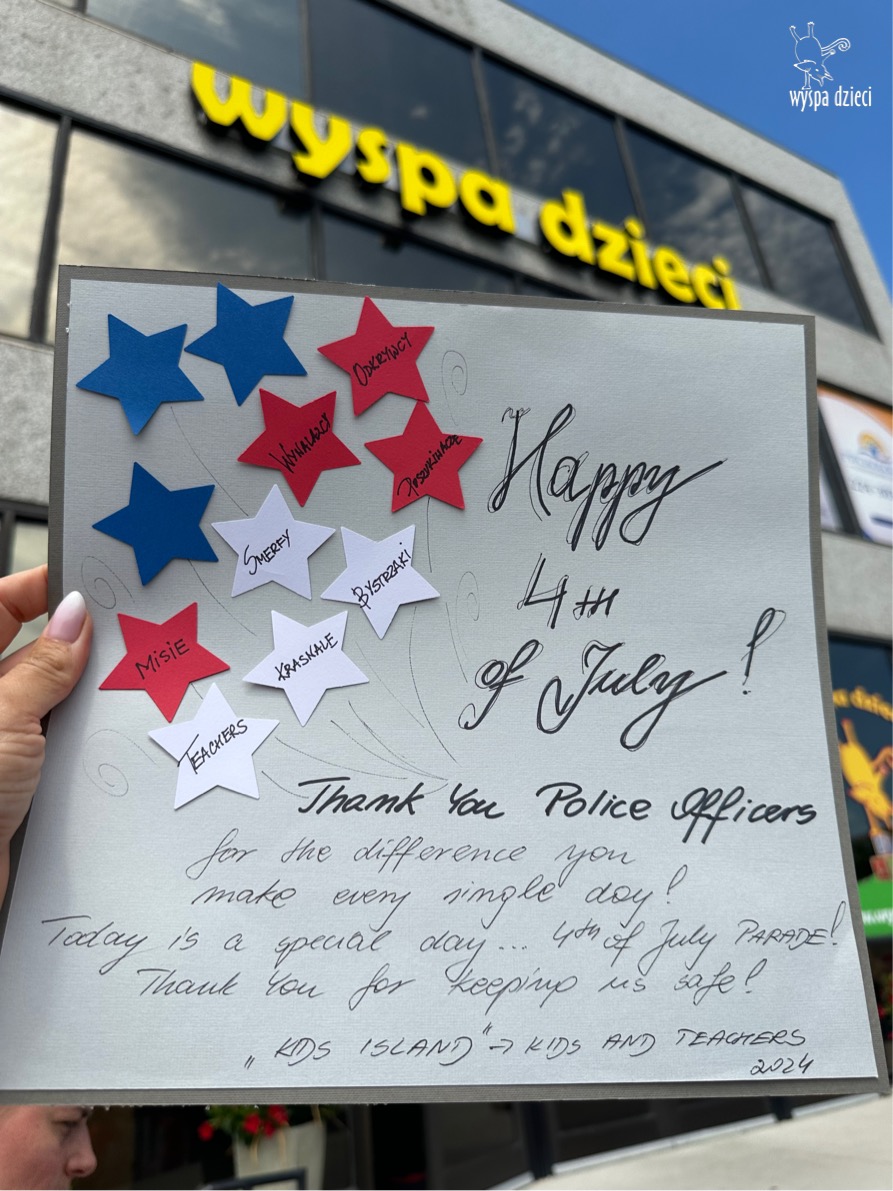 wyspa dzieci
wyspa dzieci
ODKRYWCY
WYNALAZCY
POSZUKIWACZE
SMERFY
BYSTRZAKI
MISIE
KRASNALE
TEACHERS
Happy
4TH
of July!
Thank You Police Officers
for the difference you
make every single day!
Today is a special day... 4th of July PARADE!
Thank You for keeping us safe!
„KIDS ISLAND" → KIDS AND TEACHERS
2024